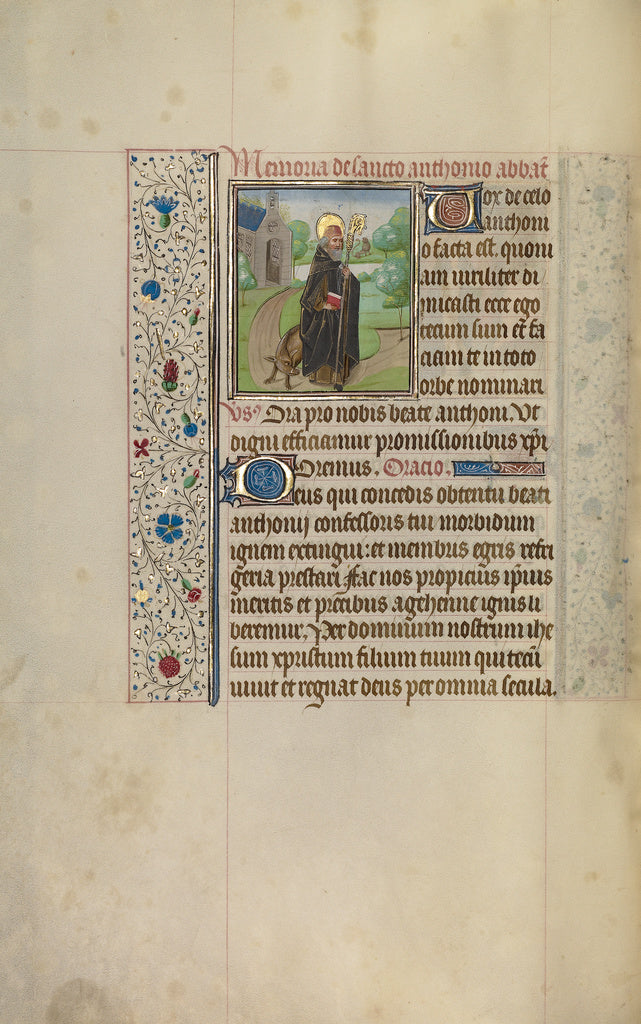 Memoria de sancto anthonio abbat̄
Vox de celo
anthoni
o facta est. quoni
am uiriliter di
micasti ecce ego
tecum sum et fa
ciam te in toto
orbe nominari
Vs9 Ora pro nobis beate anthoni. Vt
digni efficiamur promissionibus xp̄i
Oremus. Oracio.
Deus qui concedis obtentu beati
anthonij confessoris tui morbidum
ignem extingui: et membris egris refri
geria prestari fac nos propicius ip̄ius
meritis et precibus a gehenne ignis li
beremur. Per dominum nostrum ihe
sum xpristum filium tuum qui tecū
uiuit et regnat deus per omnia secula.